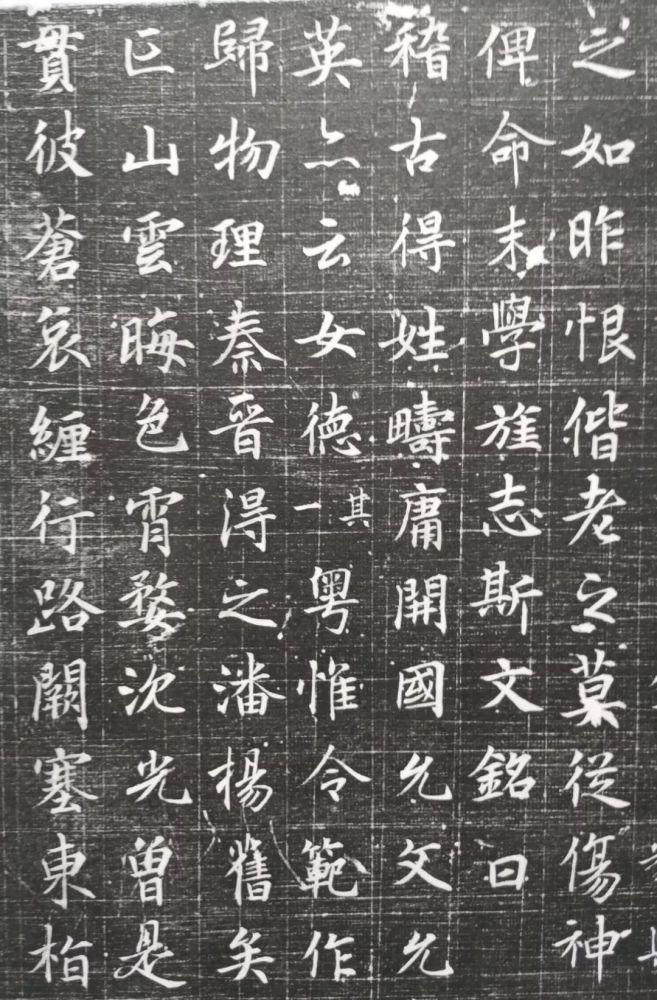 之如昨恨偕老之莫從傷神
俾命末學旌志斯文銘曰
稽古得姓疇庸開國允文允
英亦云女德一其粵惟令範作
歸物理秦晉得之潘楊舊矣
山雲晦色宵婺沈光曾是
貫彼蒼哀纏行路闕塞東栢